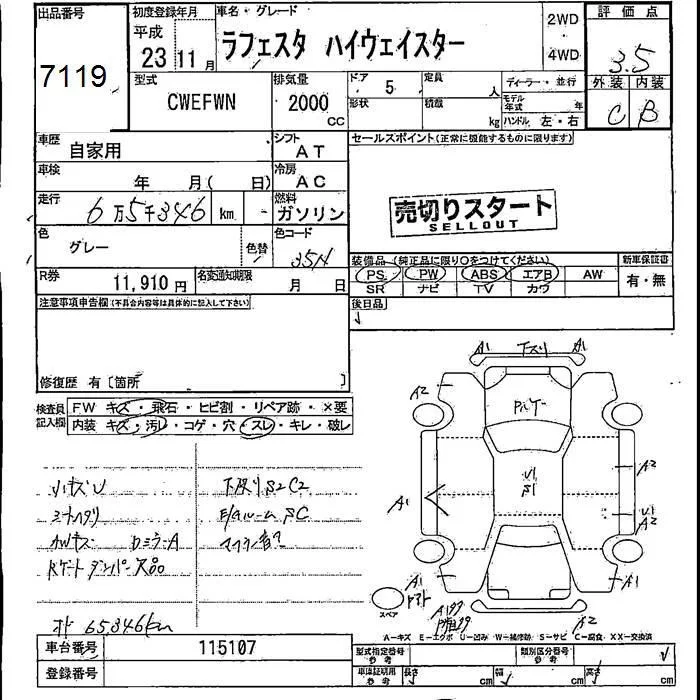 出品番号 初度登録年月 車名・グレード 2WD 評価点
7119 平成 23 年 11 月 ラフェスタ ハイウェイスター 4WD 3.5
型式 CWEFWN 排気量 2000 CC ドア 5 定員 人 ディーラー・並行 外装 内装
形状 積載 kg モデル年式 年 ハンドル 左・右 C B
車歴 自家用 シフト AT セールスポイント(正常に機能するものに限ります)
車検 年 月( 日) 冷房 AC
走行 6万5千346 km 燃料 ガソリン 売切りスタート
SELLOUT
色 グレー 色替 色コード
装備品(純正品に限り○をつけてください) 新車保証書
R券 11,910 円 名変通知期限 月 日 PS PW ABS エアB AW 有・無
SR ナビ TV カワ
注意事項申告欄(不具合内容等は具体的に記入して下さい) 後日品
修復歴 有 [箇所 ]
検査員記入欄 FW キズ・飛石・ヒビ割・リペア跡・×要
内装 キズ・汚レ・コゲ・穴・スレ・キレ・破レ
A1 下スリ A1
A2
A2
A1
A2
A1 A1
A2
小キズU 下廻りS2C2
シートヘタリ
ロミラーA
オド 65,346km
スペア
A-キズ E-エクボ U-凹み W-補修跡 S-サビ C-腐食 XX-交換済
車台番号 115107 型式指定番号 参考 類別区分番号 参考
登録番号 車庫証明用 参考 長さ cm 幅 cm 高さ cm